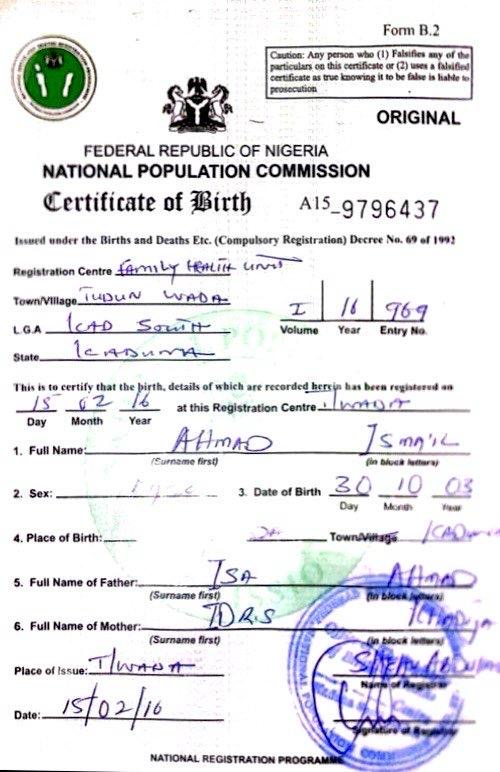 Form B.2
Caution: Any person who (1) Falsifies any of the
particulars on this certificate or (2) uses a falsified
certificate as true knowing it to be false is liable to
prosecution
ORIGINAL
FEDERAL REPUBLIC OF NIGERIA
NATIONAL POPULATION COMMISSION
Certificate of Birth A15-9796437
Issued under the Births and Deaths Etc. (Compulsory Registration) Decree No. 69 of 1992
Registration Centre FAMILY HEALTH UNIT
Town/Village TUDUN WADA
I 16 969
L.G.A KAD SOUTH
Volume Year Entry No.
State KADUNA
This is to certify that the birth, details of which are recorded herein has been registered on
15 02 16 at this Registration Centre T/WADA
Day Month Year
1. Full Name: AHMAD ISMA'IL
(Surname first) (in block letters)
2. Sex: 3. Date of Birth 30 10 03
Day Month Year
4. Place of Birth: Town/Village KADUNA
5. Full Name of Father: ISA AHMAD
(Surname first) (in block letters)
6. Full Name of Mother: IDRIS
(Surname first) (in block letters)
Place of Issue: T/WADA
Name of Registrar
Date: 15/02/16
Signature of Registrar
NATIONAL REGISTRATION PROGRAMME